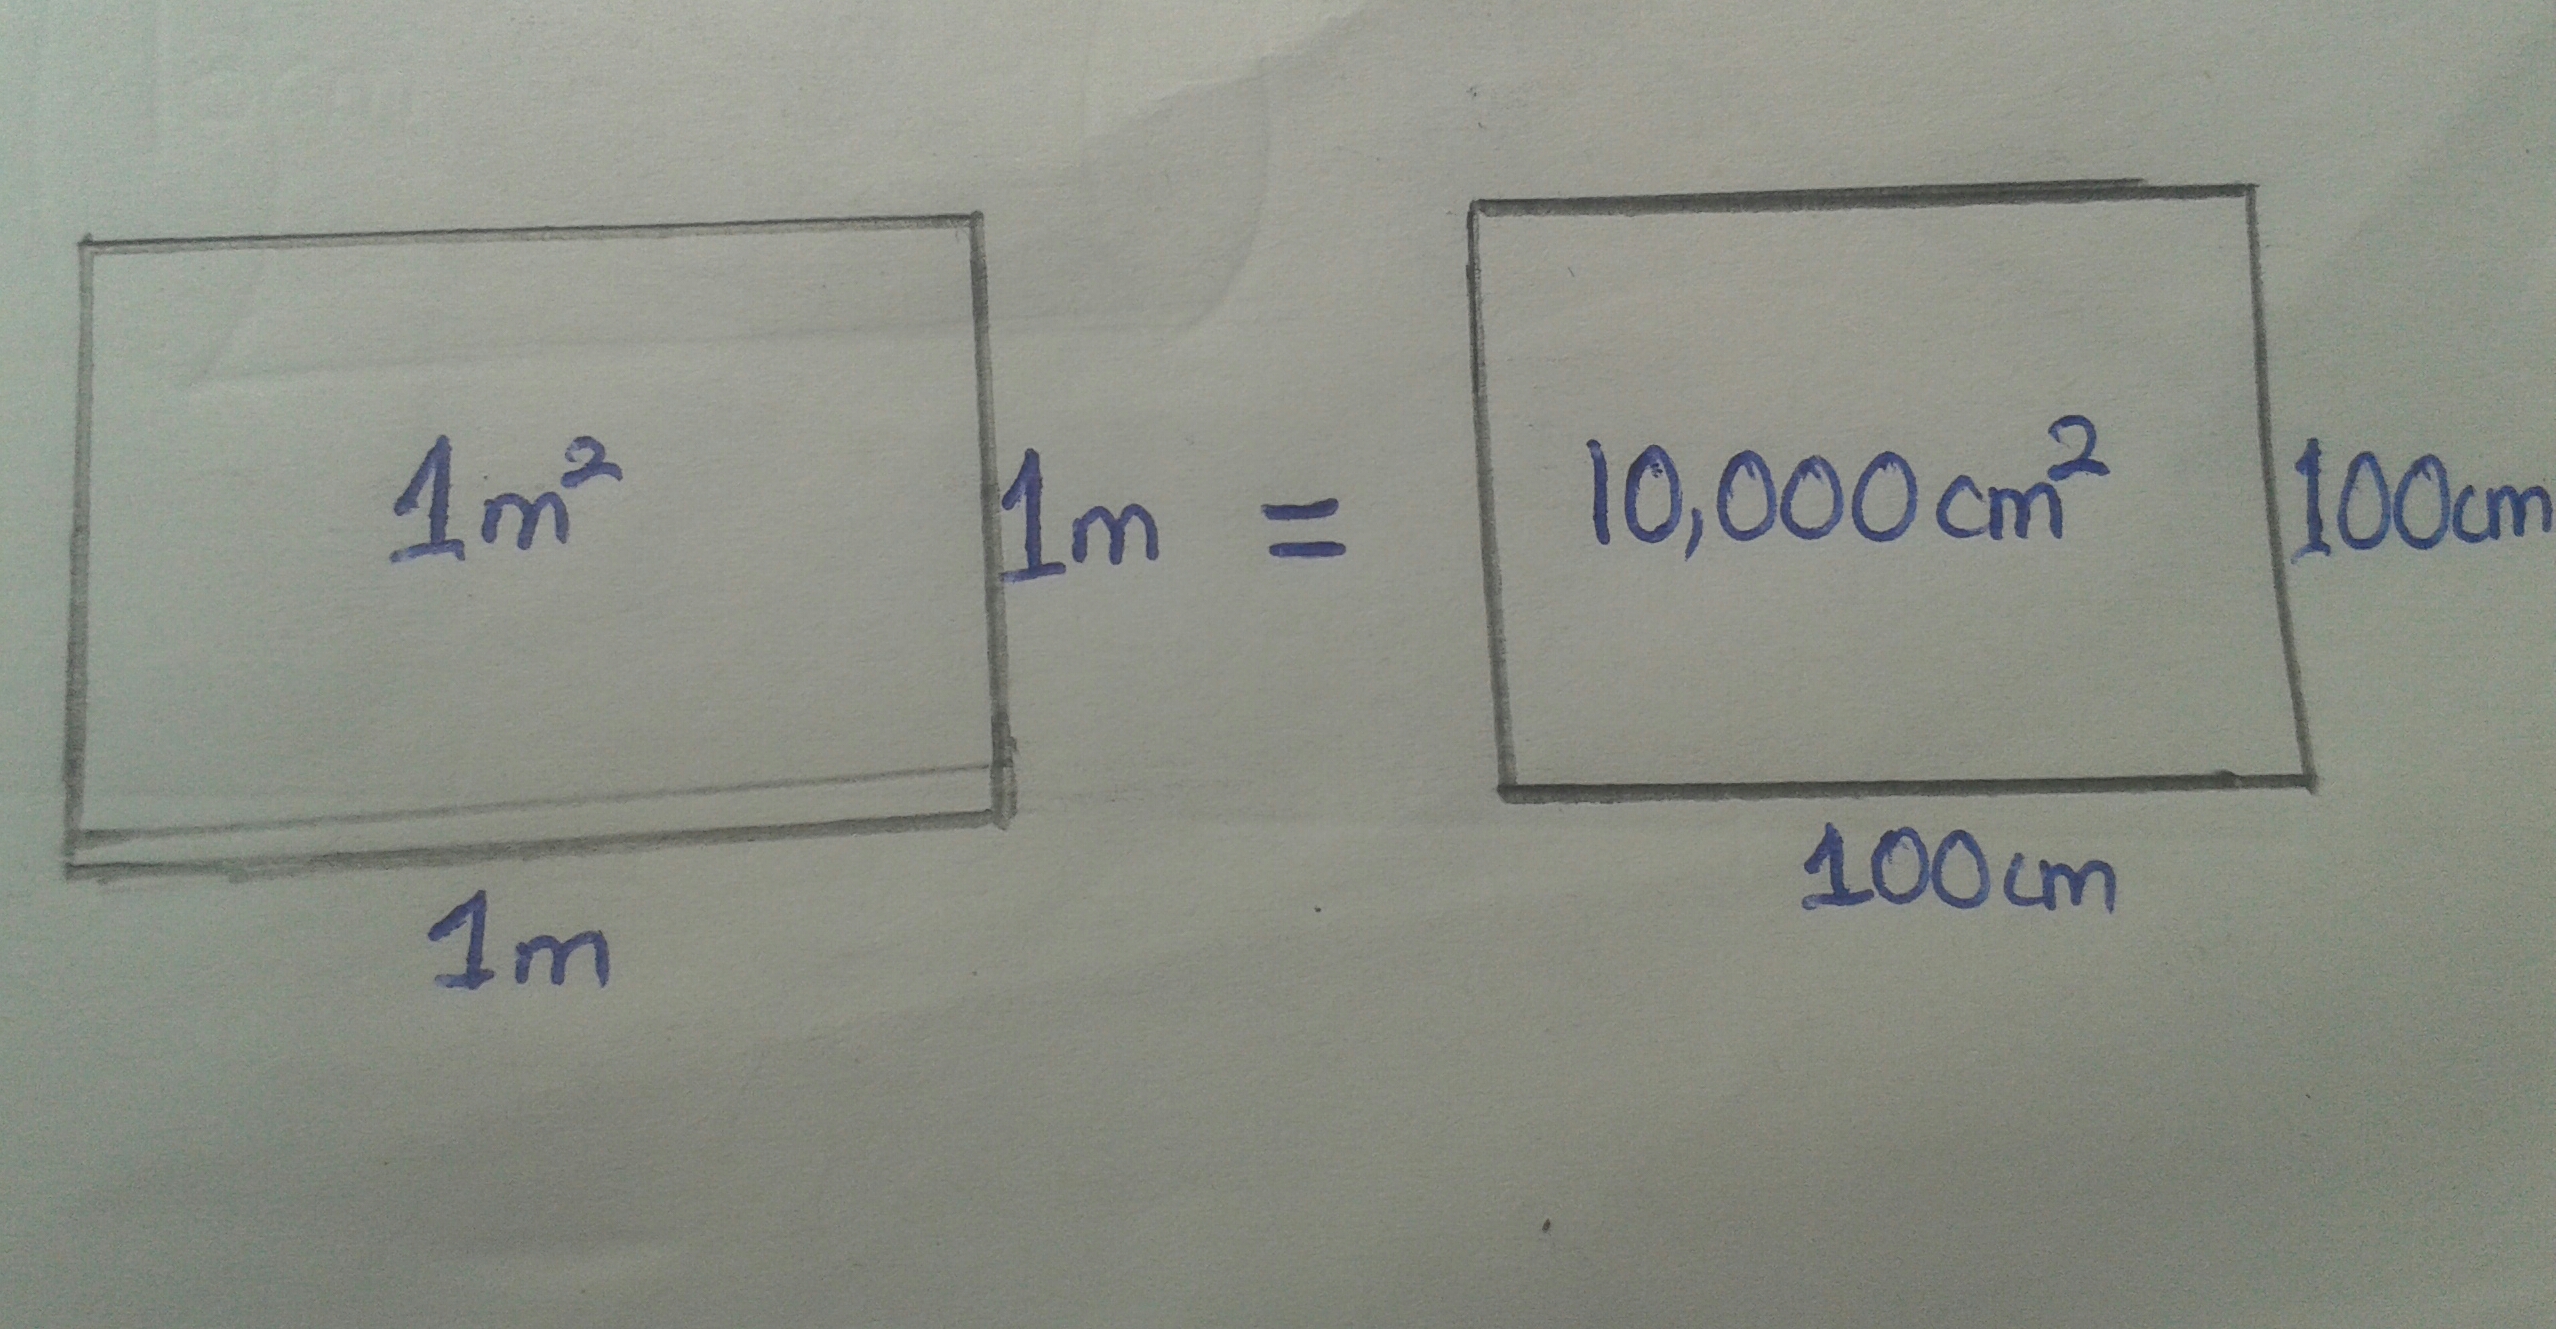 1m² 1m = 10,000cm² 100cm
1m 100cm